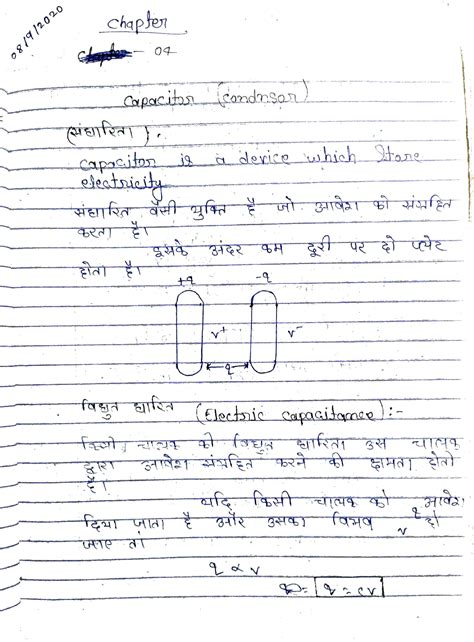 08/9/2020
Chapter
- 04
Capacitor (condnsor)
(संधारिता).
Capacitor is a device which Store
electricity
संधारित्र वैसी युक्ति है जो आवेश को संग्रहित
करता है।
इसके अंदर कम दूरी पर दो प्लेट
होता है।
+q -q
v+ v-
q
विद्युत धारिता (Electric capacitance):-
किसी चालक को विद्युत धारिता उस चालक
द्वारा आवेश संग्रहित करने की क्षमता होती
है।
यदि किसी चालक को q आवेश
दिया जाता है और उसका विभव v हो
जाए तो
q ∝ v
q = cv